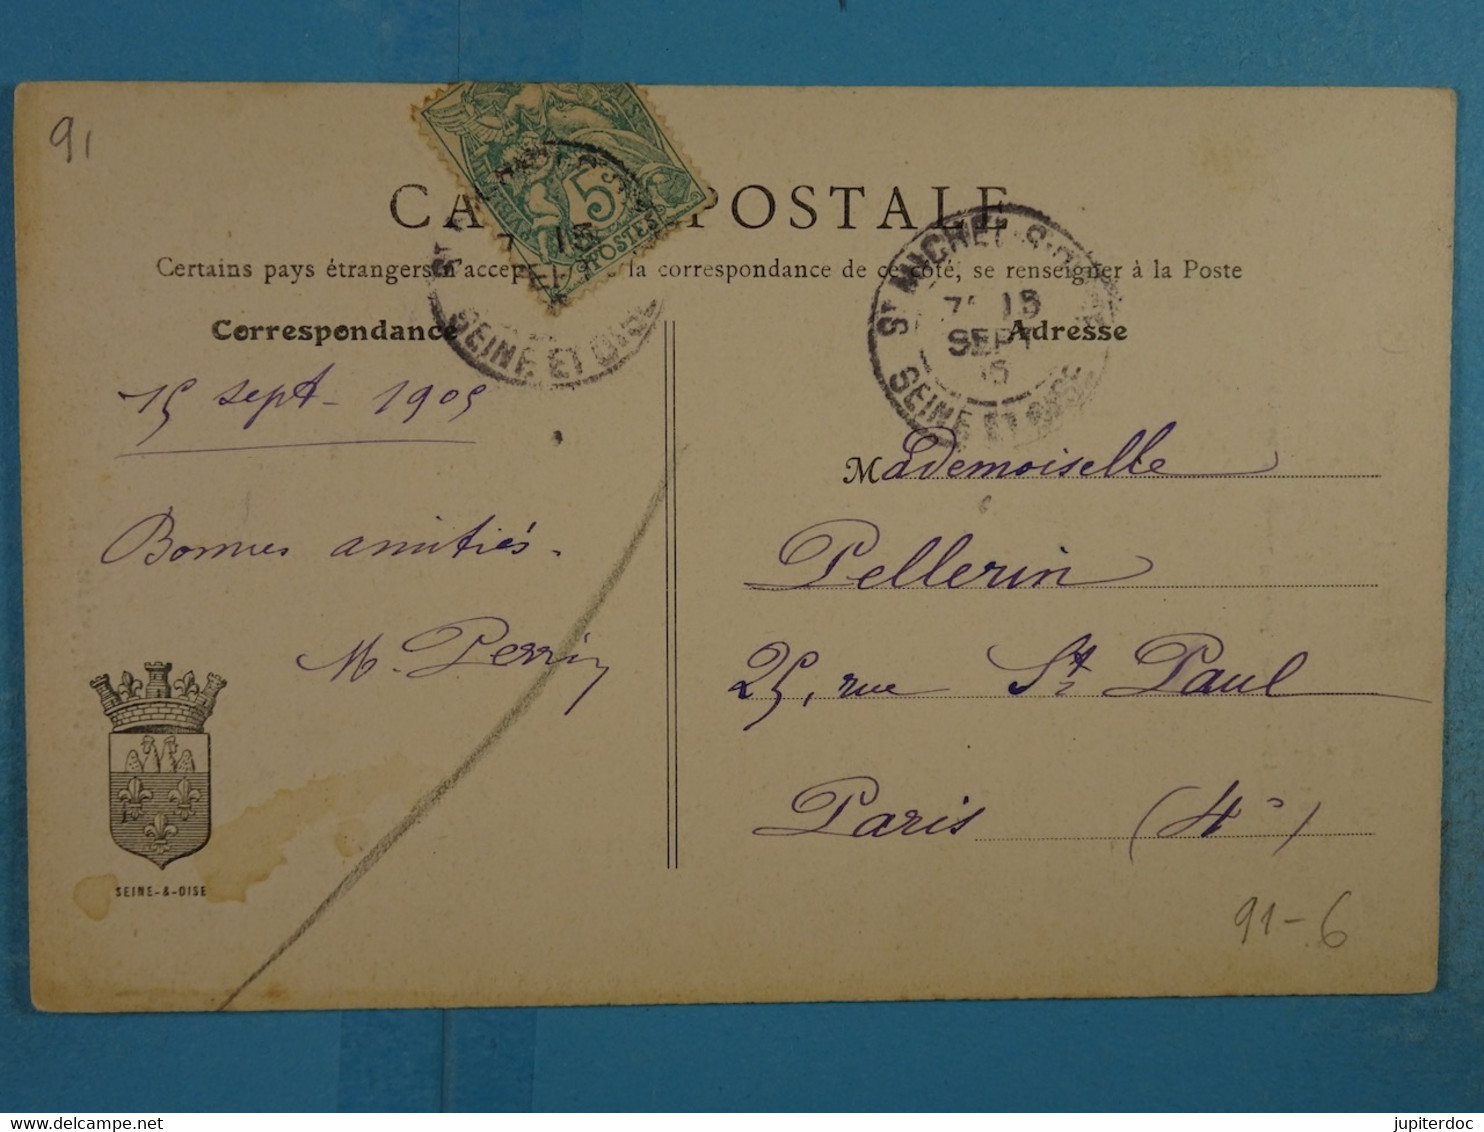 91
CA POSTALE
Certains pays étrangers n'accep la correspondance de ce côté, se renseigner à la Poste
5
POSTES
15
SEINE ET OISE
ST MICHEL S
7 15
SEPT
05
SEINE ET OISE
Correspondance
15 sept - 1905
Bonnes amitiés.
M. Perrin
SEINE-&-OISE
Adresse
Mademoiselle
Pellerin
25, rue St Paul
Paris (4e)
91-6
delcampe.net
jupiterdoc